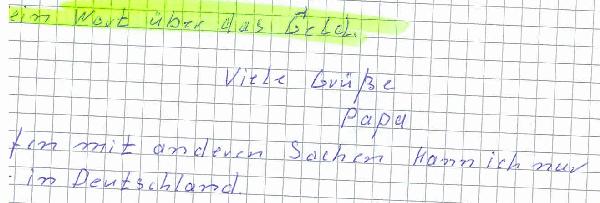 ein Wort über das Geld.
Viele Grüße
Papa
fen mit anderen Sachen kann ich nur
in Deutschland.